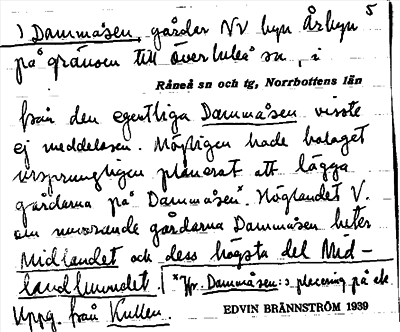 ) Dammåsen, gårdar NV byn Årbyn 5
på gränsen till Överluleå sn, i
Råneå sn och tg, Norrbottens län
från den egentliga Dammåsen visste
ej meddelaren. Möjligen hade bolaget
ursprungligen planerat att lägga
gårdarna på Dammåsen*. Höglandet V.
om nuvarande gårdarna Dammåsen heter
Midlandet och dess högsta del Mid-
landhuvudet. *Jfr Dammåsen:s placering på ek
Uppg. från Kullen.
EDVIN BRÄNNSTRÖM 1939